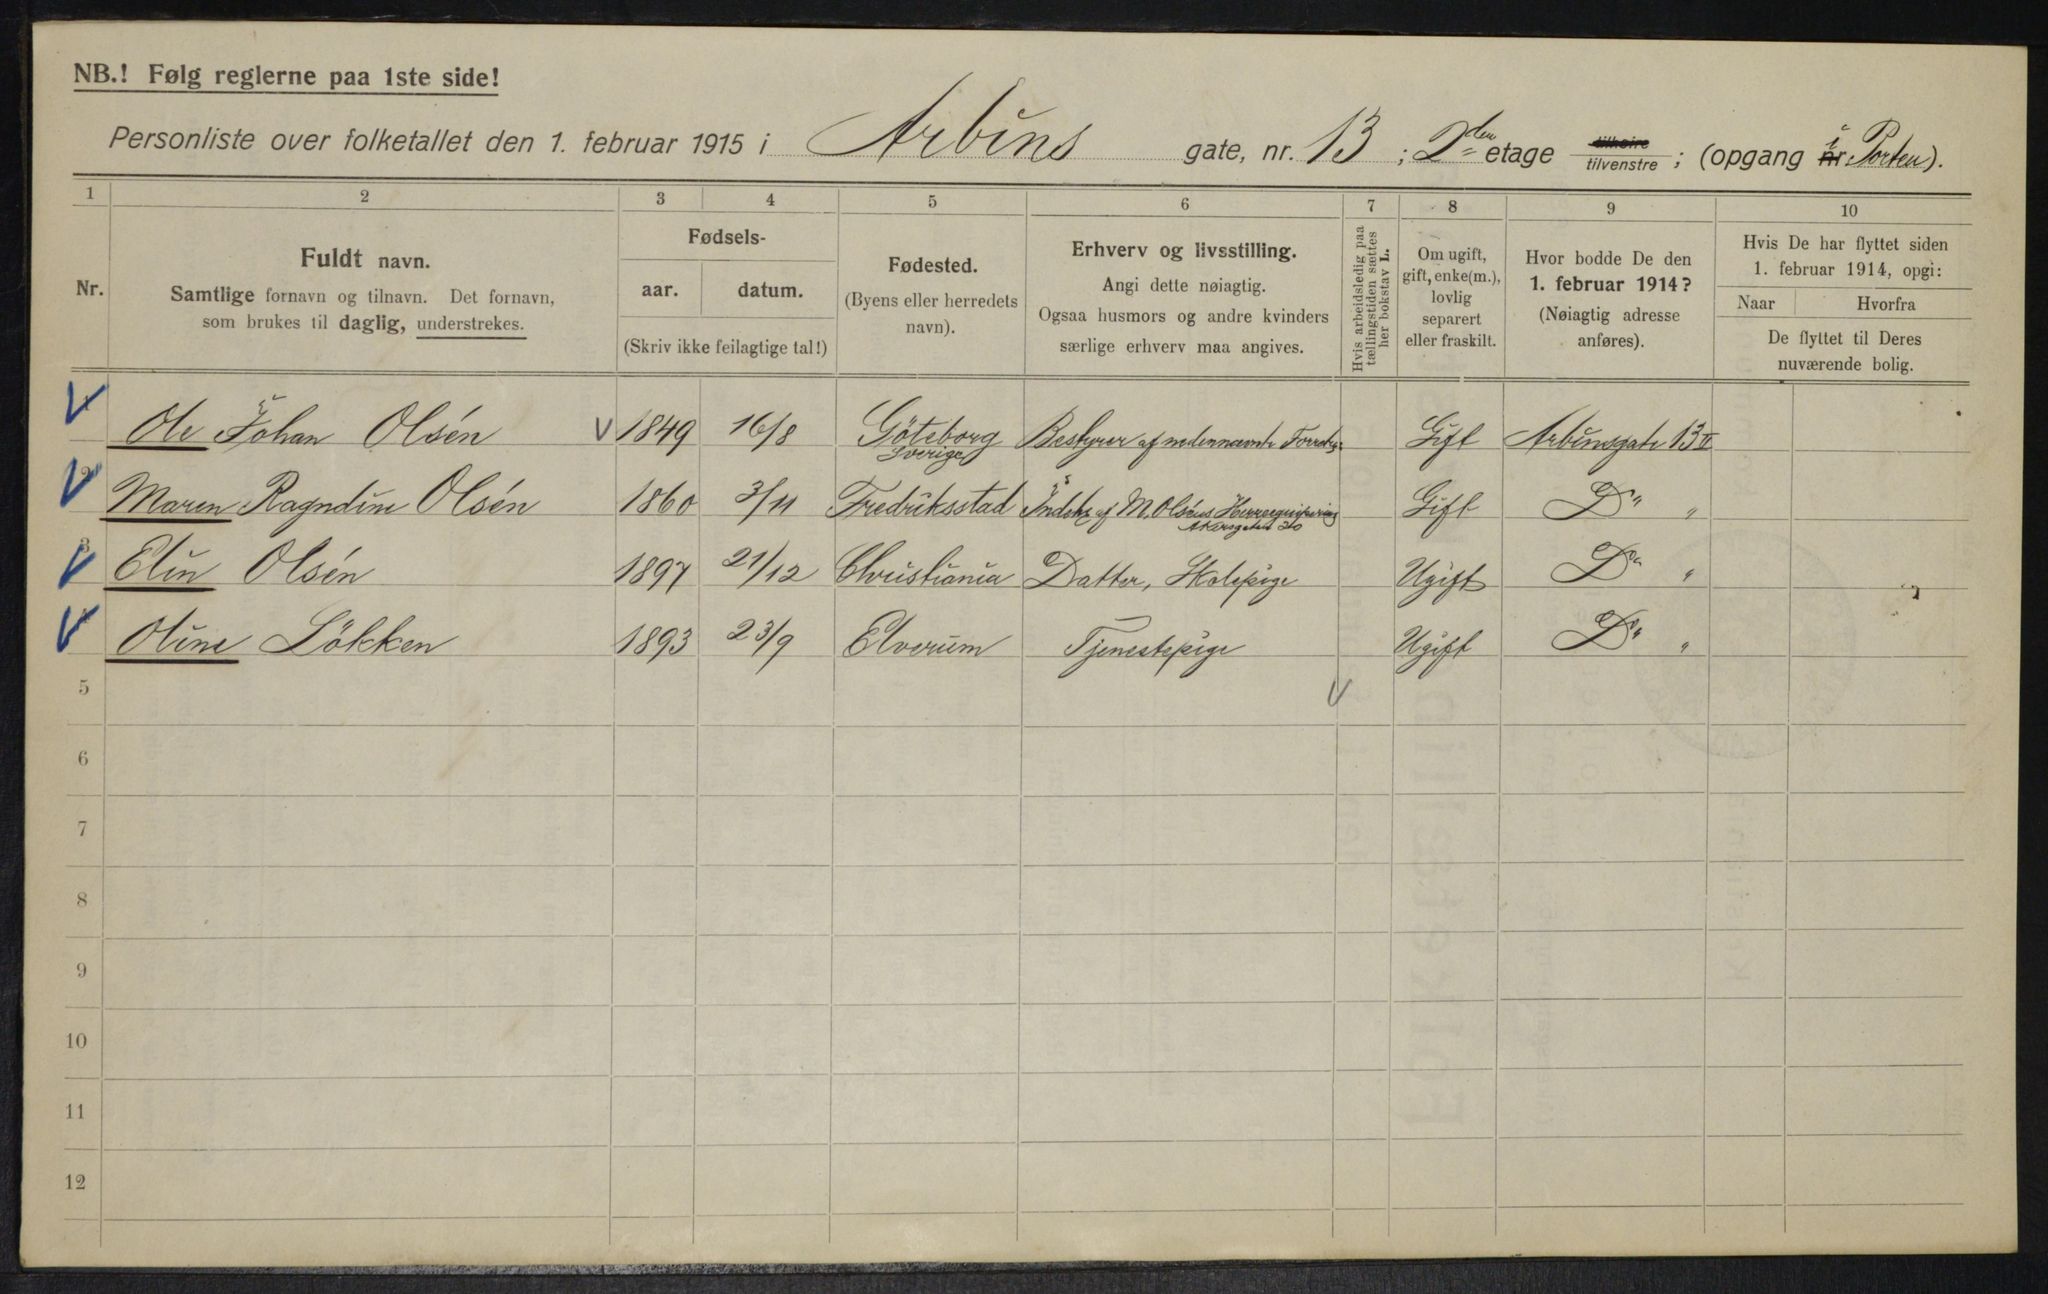 NB.! Følg reglerne paa 1ste side!
Personliste over folketallet den 1. februar 1915 i Arbins gate, nr. 13; 2den etage tilhøire tilvenstre; (opgang nr. i Porten).
1 2 3 4 5 6 7 8 9 10
Nr.
Fuldt navn.
Samtlige fornavn og tilnavn. Det fornavn,
som brukes til daglig, understrekes.
Fødsels-
aar. datum.
(Skriv ikke feilagtige tal!)
Fødested.
(Byens eller herredets
navn).
Erhverv og livsstilling.
Angi dette nøiagtig.
Ogsaa husmors og andre kvinders
særlige erhverv maa angives.
Hvis arbeidsledig paa
tællingstiden sættes
her bokstav L.
Om ugift,
gift, enke(m.),
lovlig
separert
eller fraskilt.
Hvor bodde De den
1. februar 1914?
(Nøiagtig adresse
anføres).
Hvis De har flyttet siden
1. februar 1914, opgi:
Naar Hvorfra
De flyttet til Deres
nuværende bolig.
1 Ole Johan Olsén 1849 16/8 Göteborg Bestyrer af nedennævnte Gift Arbinsgate 13 II
Sverige
2 Maren Ragndine Olsén 1860 3/11 Fredriksstad Indeh. af M. Olséns Herreequipering Gift Do "
Akersgaten 20
3 Elin Olsén 1897 21/12 Christiania Datter, Skolepige Ugift Do "
4 Oline Lökken 1893 23/9 Elverum Tjenestepige Ugift Do "
5
6
7
8
9
10
11
12